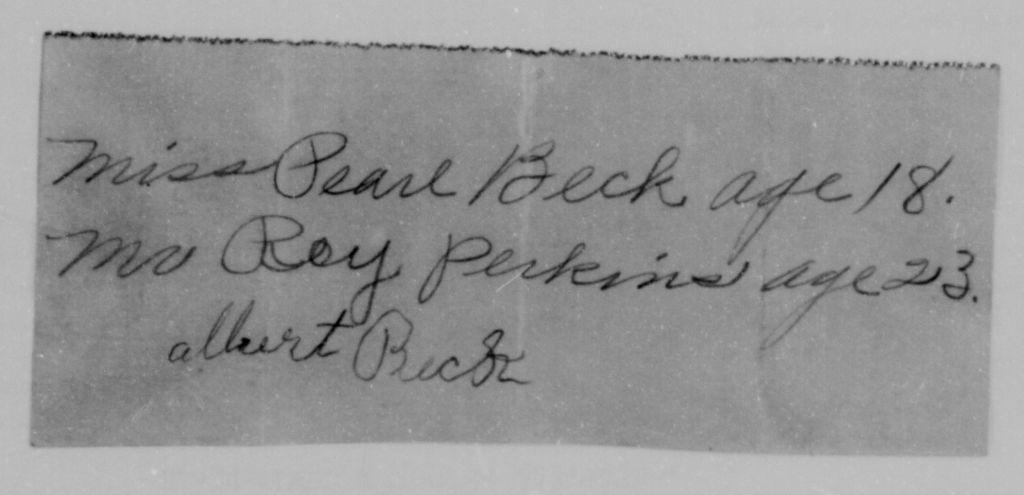 Miss Pearl Beck age 18.
Mr Roy Perkins age 23.
albert Beck